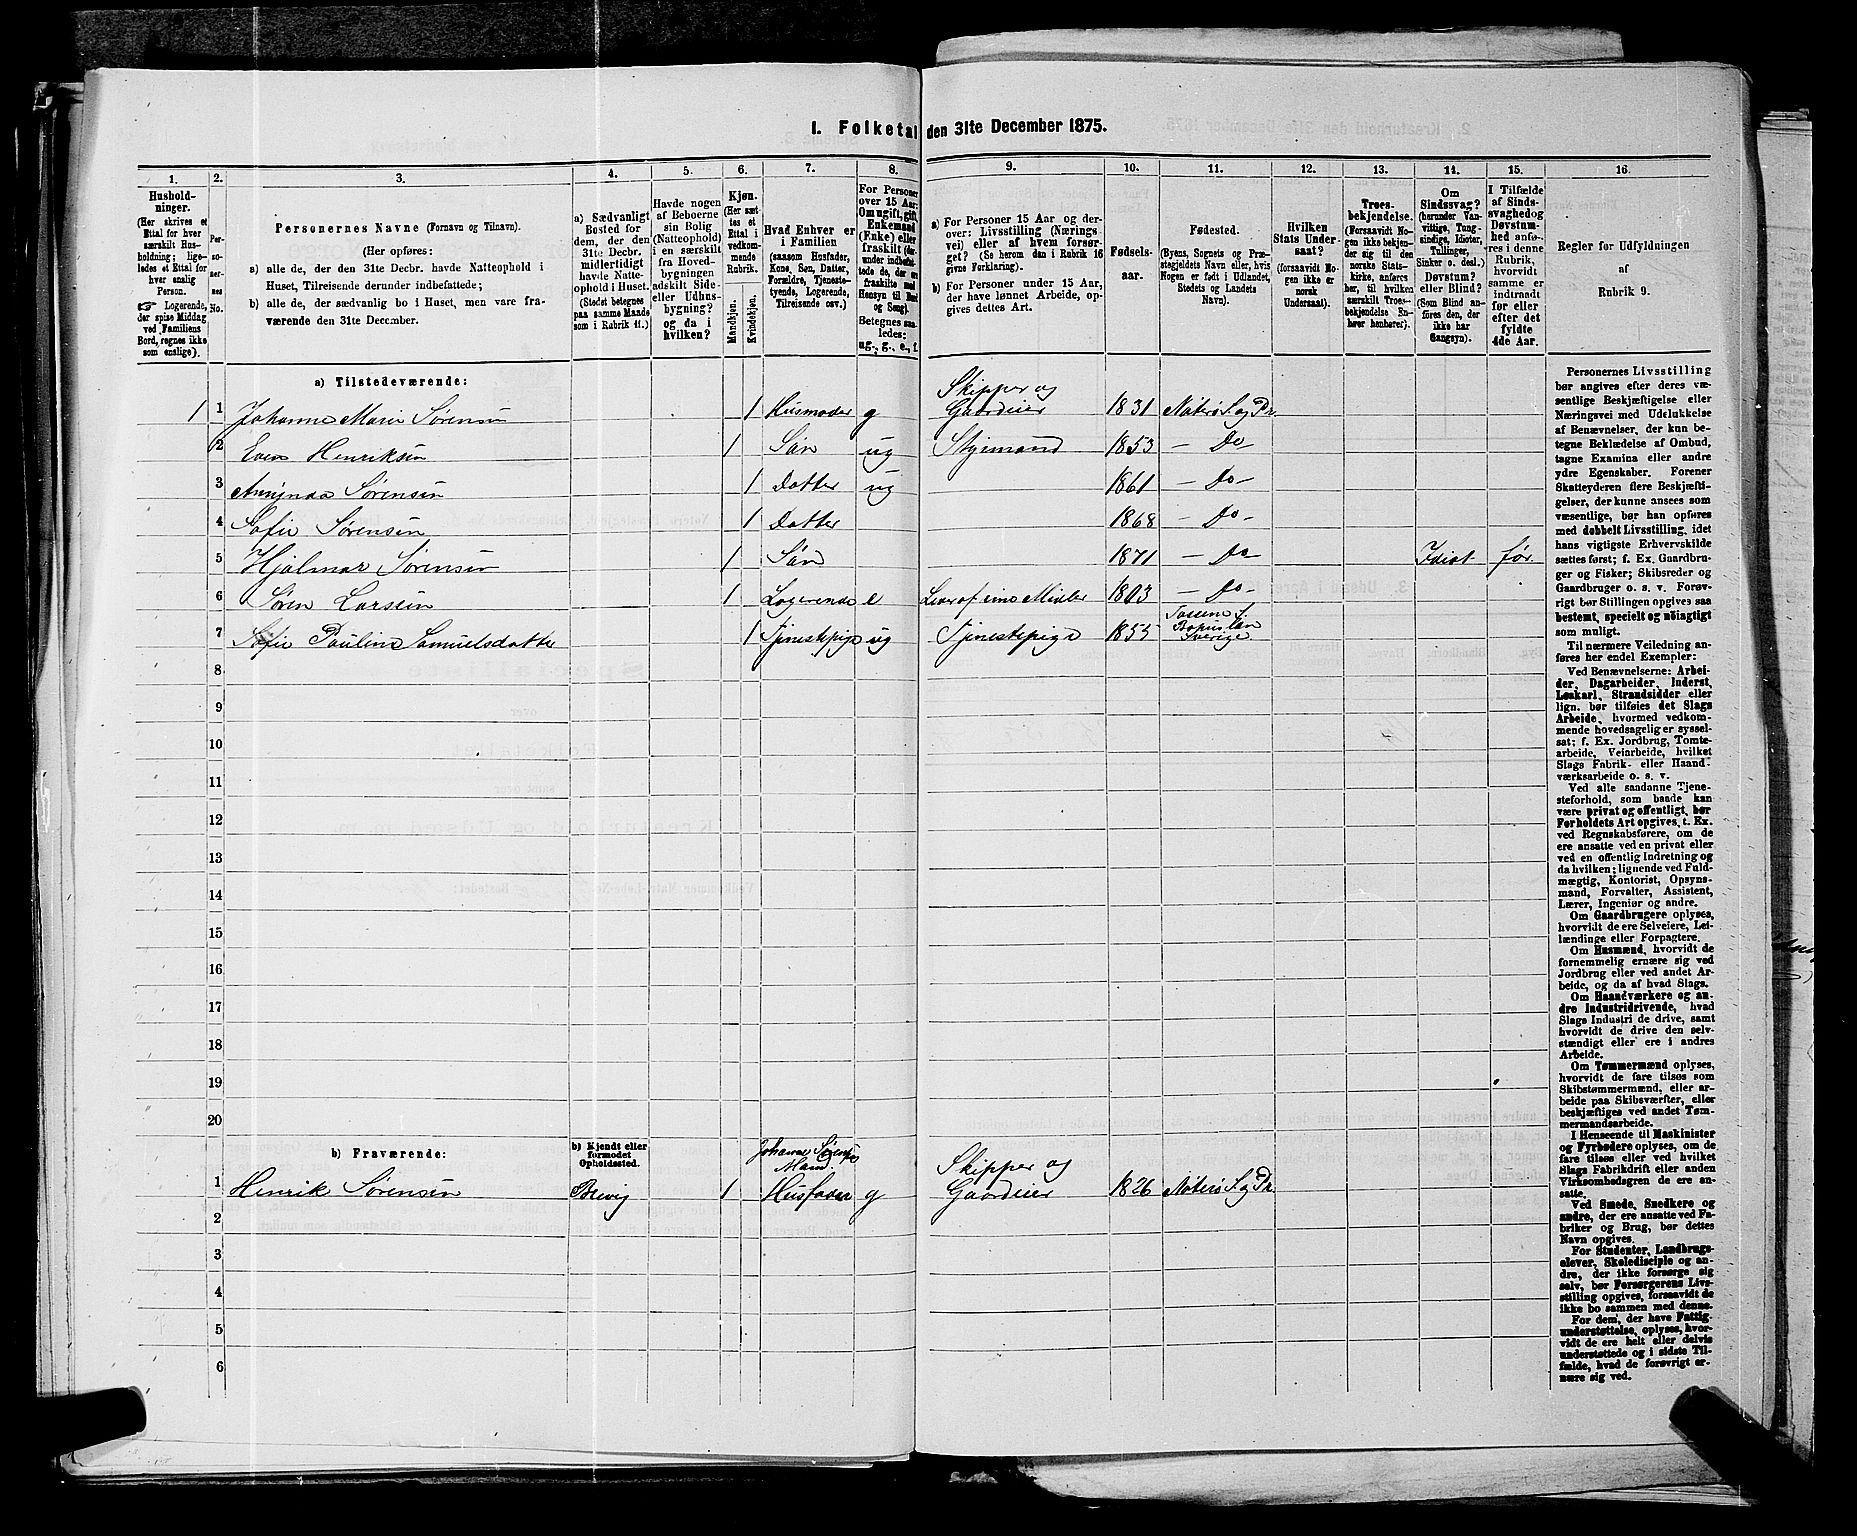 I. Folketal den 31te December 1875.
1. 2. 3. 4. 5. 6. 7. 8. 9. 10. 11. 12. 13. 14. 15. 16.
Hushold-
ninger.
(Her skrives et
Ettal for hver
særskilt Hus-
holdning; lige-
ledes et Ettal for
hver enslig
Person.
☞ Logerende,
der spise Middag
ved Familiens
Bord, regnes ikke
som enslige).
Per-
soner-
nes
No.
Personernes Navne (Fornavn og Tilnavn).
(Her opføres:
a) alle de, der den 31te Decbr. havde Natteophold i
Huset, Tilreisende derunder indbefattede;
b) alle de, der sædvanlig bo i Huset, men vare fra-
værende den 31te December.
a) Sædvanligt
Bosted for
dem, der den
31te Decbr.
midlertidigt
havde Natte-
ophold i Huset.
(Stedet betegnes
paa samme Maade
som i Rubrik 11.)
Havde nogen
af Beboerne
sin Bolig
(Natteophold)
i en særskilt
fra Hoved-
bygningen
adskilt Side-
eller Udhus-
bygning?
og da i
hvilken?
Kjøn.
(Her sæt-
tes et
Ettal i
vedkom-
mende
Rubrik.
Mandkjøn.
Kvindekjøn.
Hvad Enhver er
i Familien
(saasom Husfader,
Kone, Søn, Datter,
Forældre, Tjeneste-
tyende, Logerende,
Tilreisende osv.)
For Personer
over 15 Aar:
Om ugift, gift,
Enkemand
(Enke) eller
fraskilt (der-
under indbefat-
tede de, der ere
fraskilte med
Hensyn til Bord
og Seng).
Betegnes saa-
ledes:
ug., g., e., f.
a) For Personer 15 Aar og der-
over: Livsstilling (Nærings-
vei) eller af hvem forsør-
get? (Se herom den i Rubrik 16
givne Forklaring).
b) For Personer under 15 Aar,
der have lønnet Arbeide, op-
gives dettes Art.
Fødsels-
aar.
Fødested.
(Byens, Sognets og Præ-
stegjeldets Navn eller, hvis
Nogen er født i Udlandet,
Stedets og Landets
Navn).
Hvilken
Stats Under-
saat?
(forsaavidt No-
gen ikke er
norsk
Undersaat).
Troes-
bekjendelse.
(Forsaavidt No-
gen ikke bekjen-
der sig til den
norske Stats-
kirke, anføres
her, til hvilken
særskilt Troes-
bekjendelse En-
hver henhører).
Om
Sindssvag?
(herunder Van-
vittige, Tung-
sindige, Idioter,
Tullinger,
Sinker o. desl.)
Døvstum?
eller Blind?
(Som Blind an-
føres den, der
ikke har
Gangsyn).
I Tilfælde
af Sinds-
svaghed og
Døvstum-
hed anfø-
res i denne
Rubrik,
hvorvidt
samme er
indtraadt
før eller
efter det
fyldte
4de Aar.
Regler for Udfyldningen
af
Rubrik 9.
a) Tilstedeværende:
1 1 Johanne Marie Sørensen 1 Husmoder g Skipper og Gaardeier 1831 Nøterø S og Pr.
2 Even Henriksen 1 Søn ug Styrmand 1853 – Do –
3 Amynda Sørensen 1 Datter ug 1861 – Do –
4 Sofie Sørensen 1 Datter 1868 – Do –
5 Hjalmar Sørensen 1 Søn 1871 – Do – Idiot før
6 Søren Larsen 1 Logerende e Lever af sine Midler 1803 – Do –
7 Sofie Pauline Samuelsdatter 1 Tjenestepige ug Tjenestepige 1855 Sverige
8
9
10
11
12
13
14
15
16
17
18
19
20
b) Fraværende:
b) Kjendt eller
formodet
Opholdssted.
1 Henrik Sørensen Brevig 1 Johanne Sørensens Mand Husfader g Skipper og Gaardeier 1826 Nøterø S og Pr.
2
3
4
5
6
Personernes Livsstilling
bør angives efter deres væ-
sentlige Beskjæftigelse eller
Næringsvei med Udelukkelse
af Benævnelser, der kun be-
tegne Beklædelse af Ombud,
tagne Examina eller andre
ydre Egenskaber. Forener
Skatteyderen flere Beskjæfti-
gelser, der kunne ansees som
væsentlige, bør han opføres
med dobbelt Livsstilling, idet
hans vigtigste Erhvervskilde
sættes først; f. Ex. Gaardbru-
ger og Fisker; Skibsreder og
Gaardbruger o. s. v. Forøv-
rigt bør Stillingen opgives saa
bestemt, specielt og nøiagtigt
som muligt.
Til nærmere Veiledning an-
føres her endel Exempler:
Ved Benævnelserne: Arbei-
der, Dagarbeider, Inderst,
Løskarl, Strandsidder eller
lign. bør tilføies det Slags
Arbeide, hvormed vedkom-
mende hovedsagelig er syssel-
sat; f. Ex. Jordbrug, Tomte-
arbeide, Veiarbeide, hvilket
Slags Fabrik- eller Haand-
værksarbeide o. s. v.
Ved alle saadanne Tjene-
steforhold, som baade kan
være privat og offentligt, bør
Forholdets Art opgives, t. Ex.
ved Regnskabsførere, om de
ere ansatte ved en privat eller
ved en offentlig Indretning og
da hvilken; lignende ved Fuld-
mægtig, Kontorist, Opsyns-
mand, Forvalter, Assistent,
Lærer, Ingeniør og andre.
Om Gaardbrugere oplyses,
hvorvidt de ere Selveiere, Lei-
lændinge eller Forpagtere.
Om Husmænd, hvorvidt de
fornemmelig ernære sig ved
Jordbrug eller ved andet Ar-
beide, og da af hvad Slags.
Om Haandværkere og an-
dre Industridrivende, hvad
Slags Industri de drive, samt
hvorvidt de drive den selv-
stændigt eller ere i andres
Arbeide.
Om Tømmermænd oplyses,
hvorvidt de fare tilsøs som
Skibstømmermænd, eller ar-
beide paa Skibsværfter, eller
beskjæftiges ved andet Tøm-
mermandsarbeide.
I Henseende til Maskinister
og Fyrbødere oplyses, om de
fare tilsøs eller ved hvilket
Slags Fabrikdrift eller anden
Virksomhedsgren de ere an-
satte.
Ved Smede, Snedkere og
andre, der ere ansatte ved Fa-
briker og Brug, bør dettes
Navn opgives.
For Studenter, Landbrugs-
elever, Skoledisciple og an-
dre, der ikke forsørge sig
selv, bør Forsørgerens Livs-
stilling opgives, forsaavidt de
ikke bo sammen med denne.
For dem, der have Fattig-
understøttelse, oplyses, hvor-
vidt de ere helt eller delvis
understøttede og i sidste Til-
fælde, hvad de forøvrigt er-
nære sig ved.